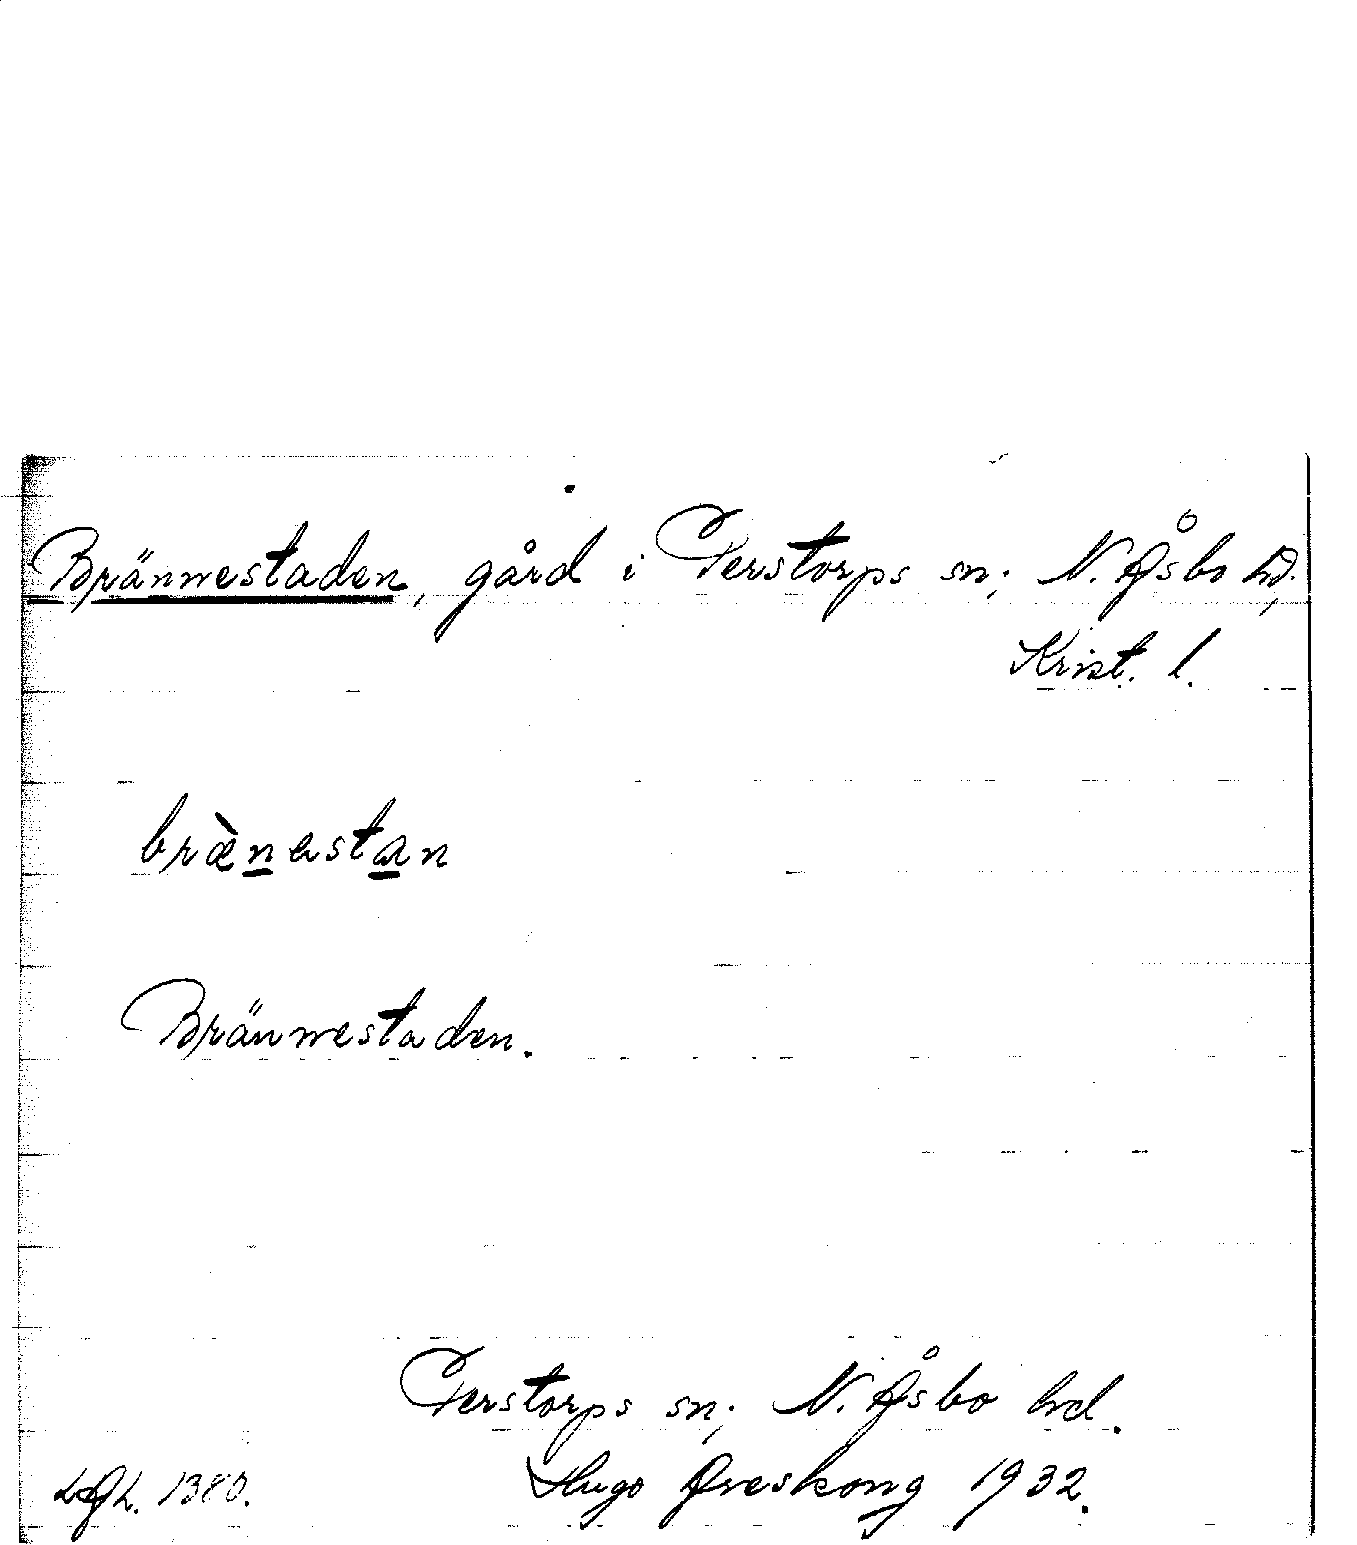 Brännestaden, gård i Perstorps sn; N. Åsbo hd.
Krist. l.
brænastan
Brännestaden.
Perstorps sn; N. Åsbo hd.
LAL. 1380. Hugo Areskoug 1932.